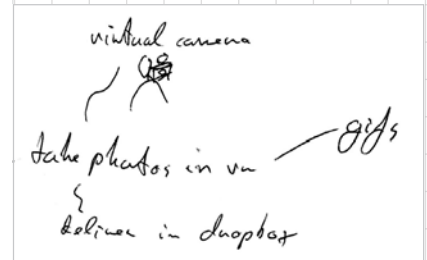 virtual camera
take photos in vr
gifs
deliver in dropbox